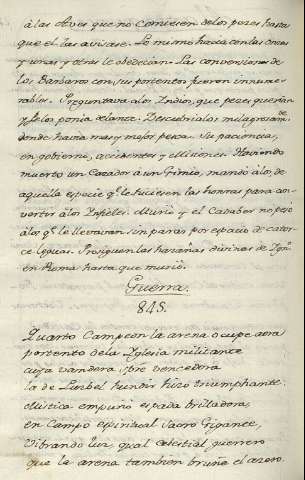 à las Aves que no comiesen delos pezes hasta
que el las avisase. Lo mismo hacia con las Onzas
y monas y otras le obedecian. Las conversiones de
los Barbaros con sus portentos fueron innume-
rables. Preguntava àlos Indios, que pezes querian
y selos ponia delante. Descubrialos milagrosam.te
donde havia mas y mejor pesca. Su paciencia,
en gobierno, accidentes y Misiones. Haviendo
muerto un Cazador à un Gimio, mandò àlos de
aquella especie q.e le hiciesen las honras para con-
vertir àlos Infieles. Muriò y el Cadaver no pesò
àlos q.e le llevaran sin parar por espacio de cator-
ce leguas. Prosiguen las hazañas divinas de Ign.o
en Roma hasta que muriò.
Guerra.
845.
Quarto Campeon la arena ocupe aora
portento dela Iglesia militante
cuya vandera spre vencedora
la de Luzbel hundir hizo triumphante:
Mistica empuñò espada brilladora,
en Campo espiritual Sacro Gigante,
Vibrando luz, qual celestial guerrero
que la arena tambien bruñe el azero.